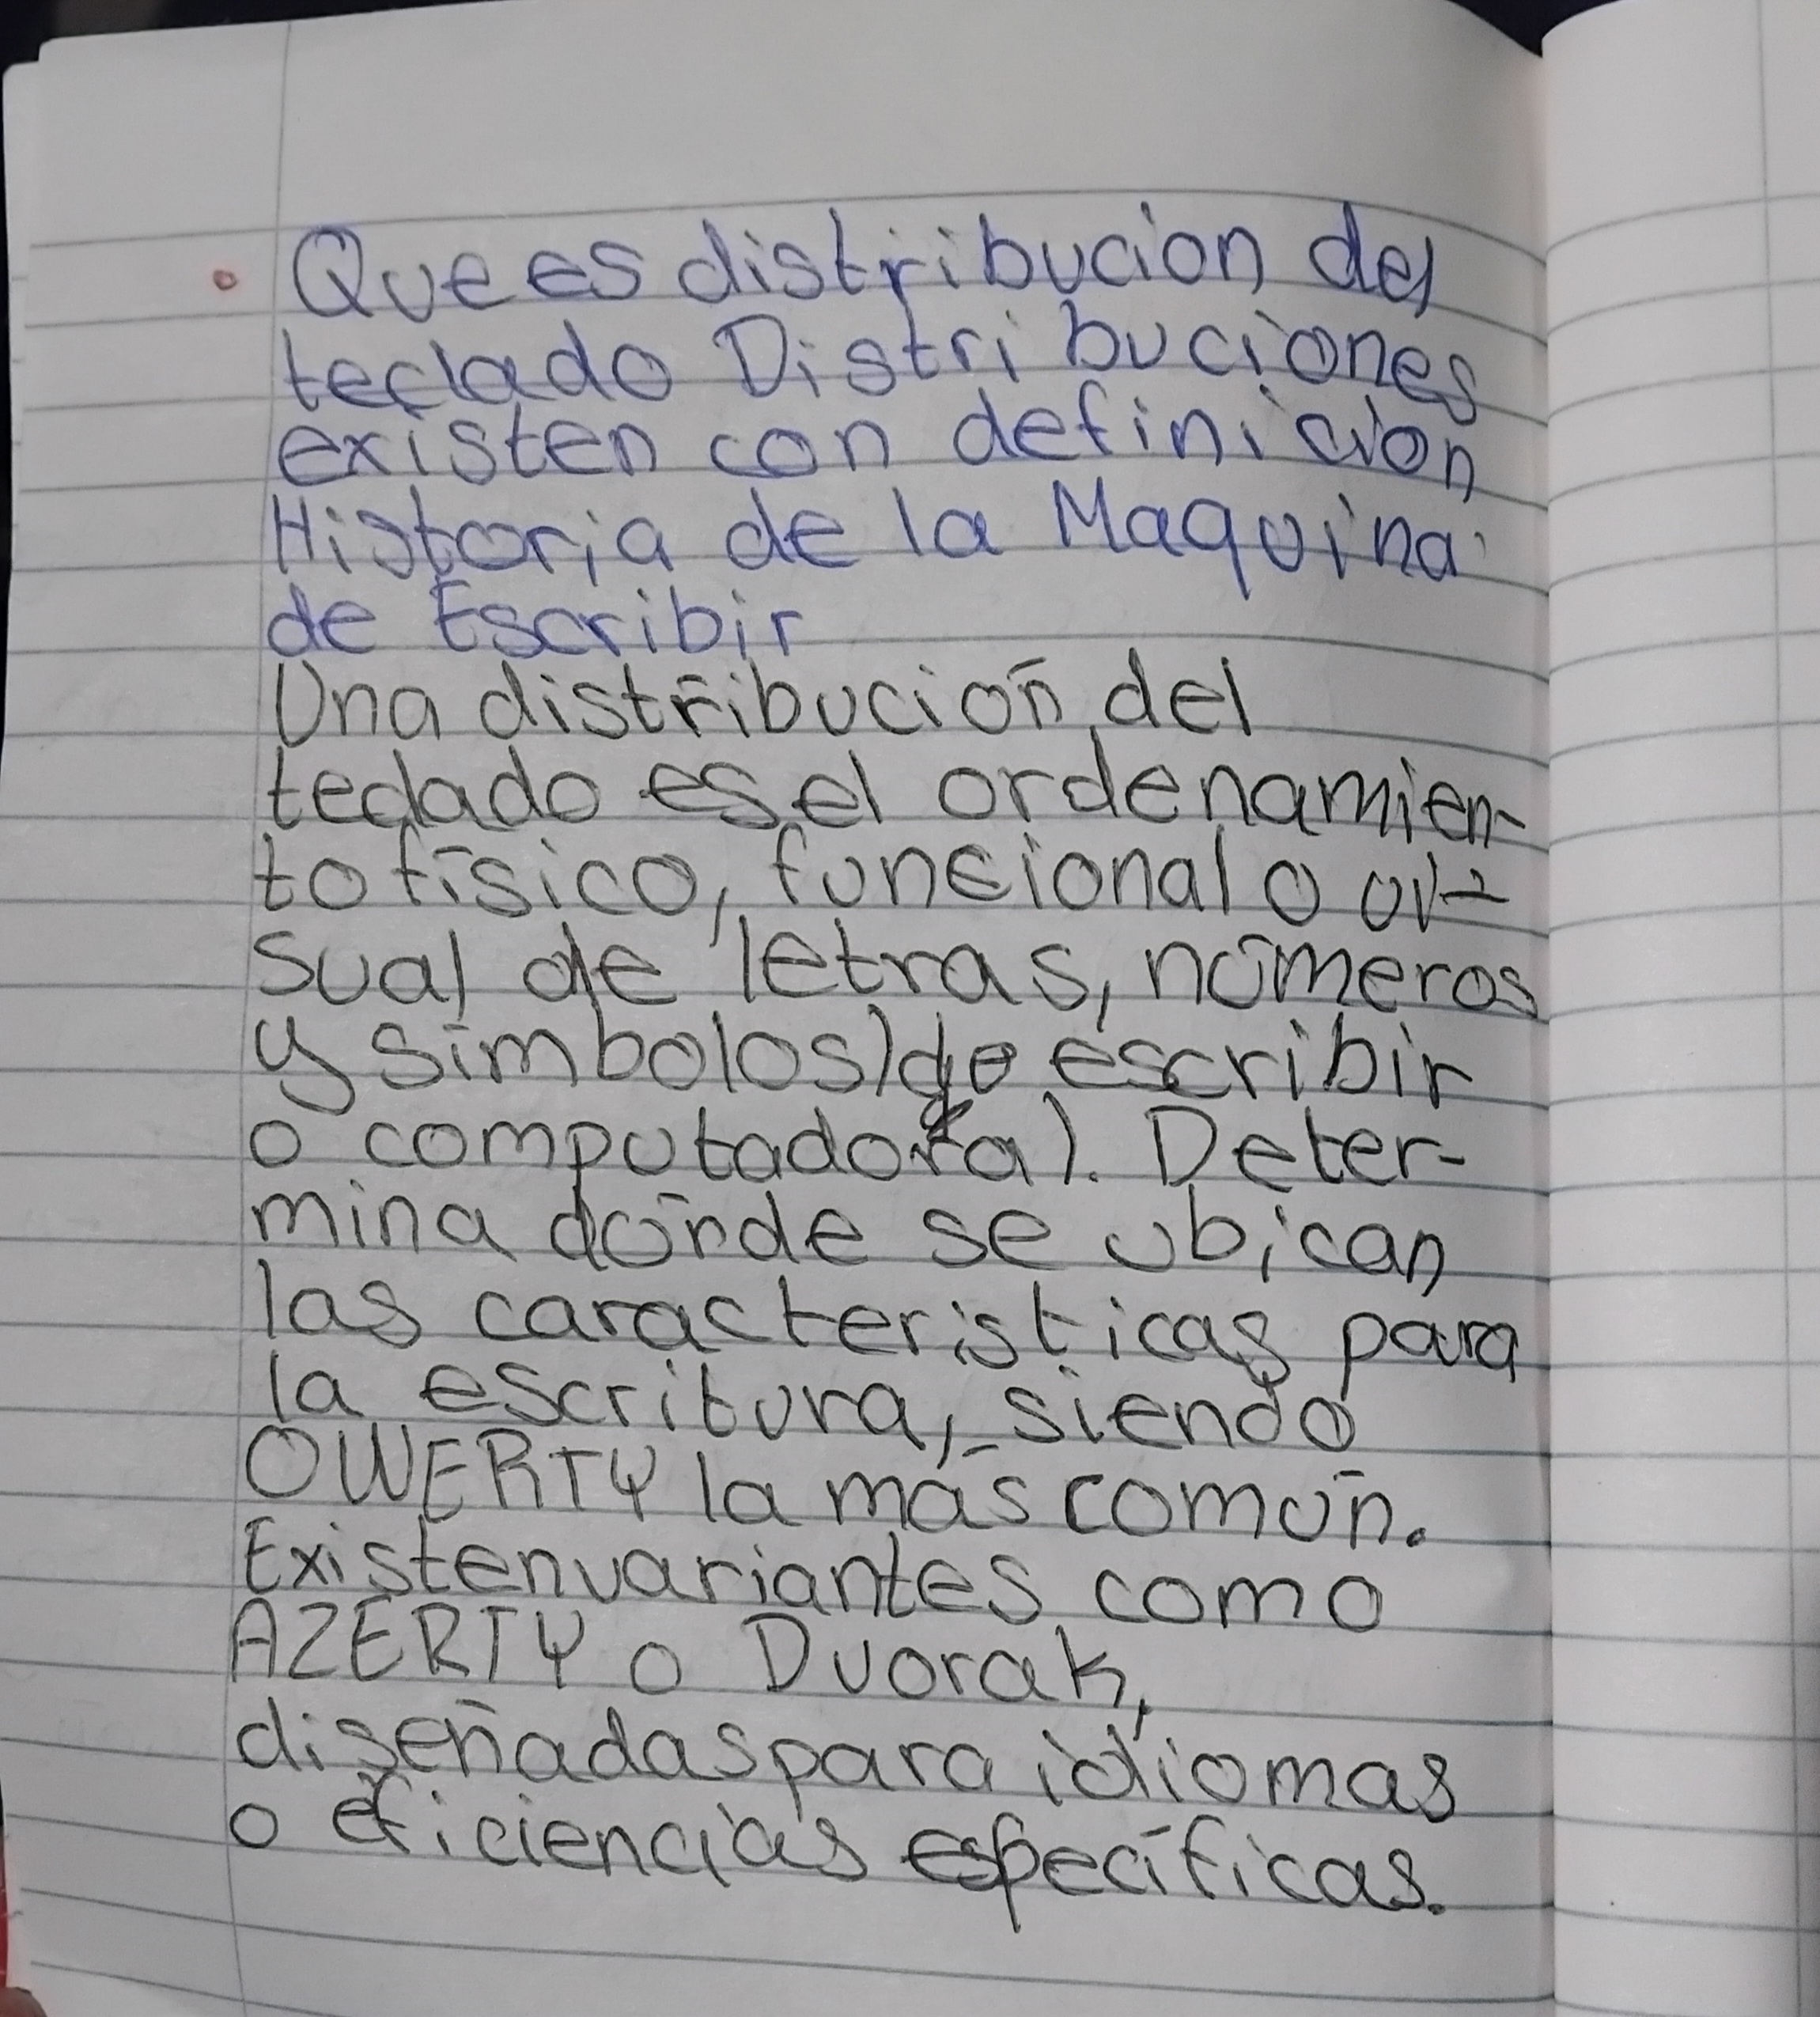 Que es distribucion del
teclado Distribuciones
existen con definicion
Historia de la Maquina
de Escribir
Una distribución del
teclado es el ordenamien-
to físico, funcional o vi-
sual de letras, números
y símbolos) de escribir
o computadora). Deter-
mina dónde se ubican
las caracteristicas para
la escritura, siendo
QWERTY la más común.
Existen variantes como
AZERTY o Dvorak,
diseñadas para idiomas
o eficiencias específicas.